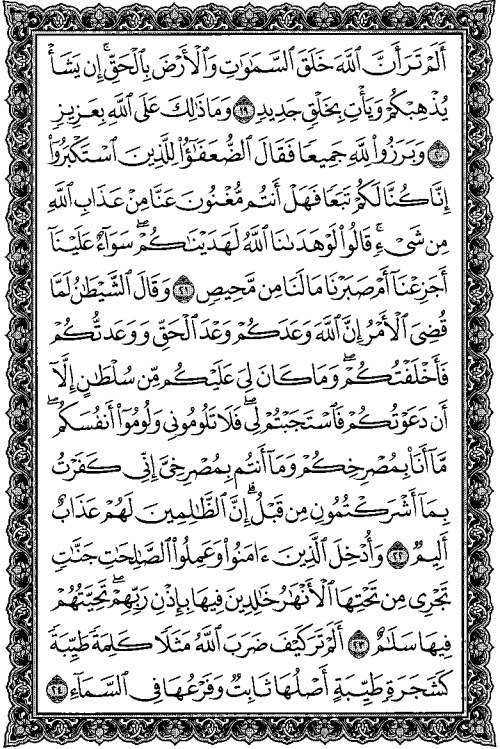 أَلَمْ تَرَ أَنَّ ٱللَّهَ خَلَقَ ٱلسَّمَٰوَٰتِ وَٱلْأَرْضَ بِٱلْحَقِّ ۚ إِن يَشَأْ
يُذْهِبْكُمْ وَيَأْتِ بِخَلْقٍ جَدِيدٍ ﴿١٩﴾ وَمَا ذَٰلِكَ عَلَى ٱللَّهِ بِعَزِيزٍ
﴿٢٠﴾ وَبَرَزُوا۟ لِلَّهِ جَمِيعًا فَقَالَ ٱلضُّعَفَٰٓؤُا۟ لِلَّذِينَ ٱسْتَكْبَرُوٓا۟
إِنَّا كُنَّا لَكُمْ تَبَعًا فَهَلْ أَنتُم مُّغْنُونَ عَنَّا مِنْ عَذَابِ ٱللَّهِ
مِن شَىْءٍ ۚ قَالُوا۟ لَوْ هَدَىٰنَا ٱللَّهُ لَهَدَيْنَٰكُمْ ۖ سَوَآءٌ عَلَيْنَآ
أَجَزِعْنَآ أَمْ صَبَرْنَا مَا لَنَا مِن مَّحِيصٍ ﴿٢١﴾ وَقَالَ ٱلشَّيْطَٰنُ لَمَّا
قُضِىَ ٱلْأَمْرُ إِنَّ ٱللَّهَ وَعَدَكُمْ وَعْدَ ٱلْحَقِّ وَوَعَدتُّكُمْ
فَأَخْلَفْتُكُمْ ۖ وَمَا كَانَ لِىَ عَلَيْكُم مِّن سُلْطَٰنٍ إِلَّآ
أَن دَعَوْتُكُمْ فَٱسْتَجَبْتُمْ لِى ۖ فَلَا تَلُومُونِى وَلُومُوٓا۟ أَنفُسَكُم ۖ
مَّآ أَنَا۠ بِمُصْرِخِكُمْ وَمَآ أَنتُم بِمُصْرِخِىَّ ۖ إِنِّى كَفَرْتُ
بِمَآ أَشْرَكْتُمُونِ مِن قَبْلُ ۗ إِنَّ ٱلظَّٰلِمِينَ لَهُمْ عَذَابٌ
أَلِيمٌ ﴿٢٢﴾ وَأُدْخِلَ ٱلَّذِينَ ءَامَنُوا۟ وَعَمِلُوا۟ ٱلصَّٰلِحَٰتِ جَنَّٰتٍ
تَجْرِى مِن تَحْتِهَا ٱلْأَنْهَٰرُ خَٰلِدِينَ فِيهَا بِإِذْنِ رَبِّهِمْ ۖ تَحِيَّتُهُمْ
فِيهَا سَلَٰمٌ ﴿٢٣﴾ أَلَمْ تَرَ كَيْفَ ضَرَبَ ٱللَّهُ مَثَلًا كَلِمَةً طَيِّبَةً
كَشَجَرَةٍ طَيِّبَةٍ أَصْلُهَا ثَابِتٌ وَفَرْعُهَا فِى ٱلسَّمَآءِ ﴿٢٤﴾